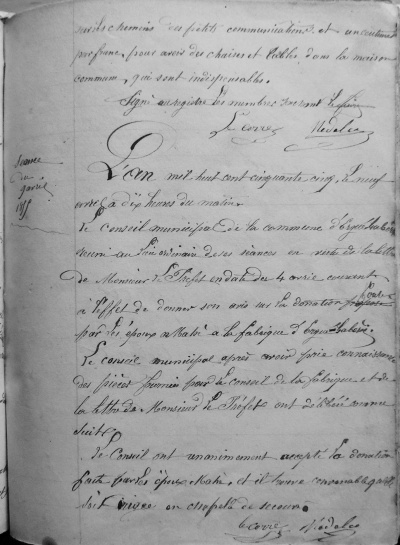 sur les chemins des petites communications. et un centime
par franc, pour avoir des chaises et table dans la maison
commune, qui sont indispensables.
Signé au registre les membres
Le Corre Nédélec
Séance
du
9 avril
1855
L'an mil huit cent cinquante cinq, le neuf
avril à dix heures du matin
le Conseil municipal de la commune d'Ergué-Gabéric
réuni au lieu ordinaire de ses séances en vertu de la lettre
de Monsieur le Préfet en date du 4 avril courant
à l'effet de donner son avis sur la donation faite
par les époux Mahé à la fabrique d'Ergué-Gabéric.
Le conseil municipal après avoir pris connaissance
des pièces fournies par le conseil de la fabrique et de
la lettre de Monsieur le Préfet ont délibéré comme
suit.
Le Conseil ont unanimement accepté la donation
faite par les époux Mahé, et il trouve convenable qu'elle
soit érigée en chapelle de secours.
Le Corre Nédélec